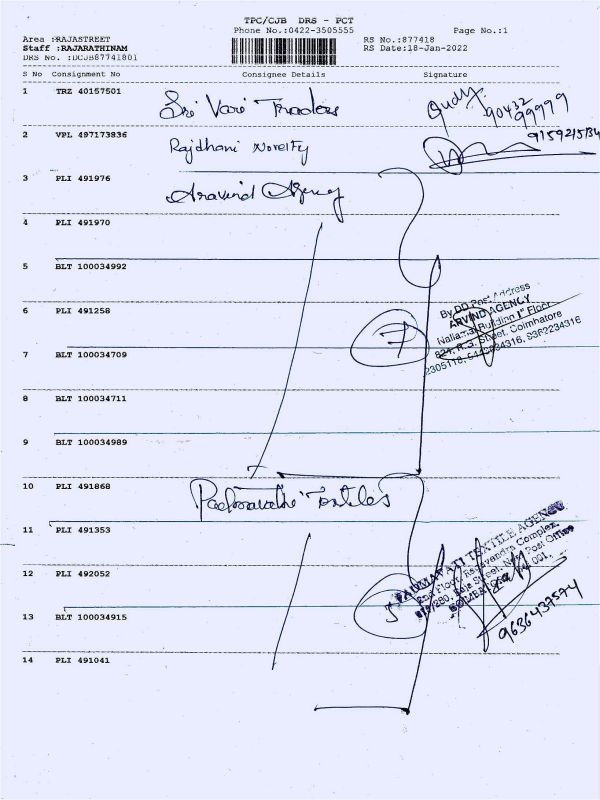 TPC/CJB DRS - PCT
Phone No.:0422-3505555 Page No.:1
Area :RAJASTREET RS No.:877418
Staff :RAJARATHINAM RS Date:18-Jan-2022
DRS No. :DCJB87741801
S No Consignment No Consignee Details Signature
1 TRZ 40157501 Sri Vari Traders 90432 99999
2 VPL 497173836 Rajdhani Novelty
3 PLI 491976 Aravind Agency
4 PLI 491970
5 BLT 100034992
6 PLI 491258
By DD Post Address
ARVIND AGENCY
Building 1st Floor
Street, Coimbatore
7
7 BLT 100034709
8 BLT 100034711
9 BLT 100034989
10 PLI 491868 Padmavathi Textiles
11 PLI 491353
PADMAVATI TEXTILE AGENCY
Floor, Complex
Street, Post Office
12 PLI 492052
5
13 BLT 100034915
9636437574
14 PLI 491041